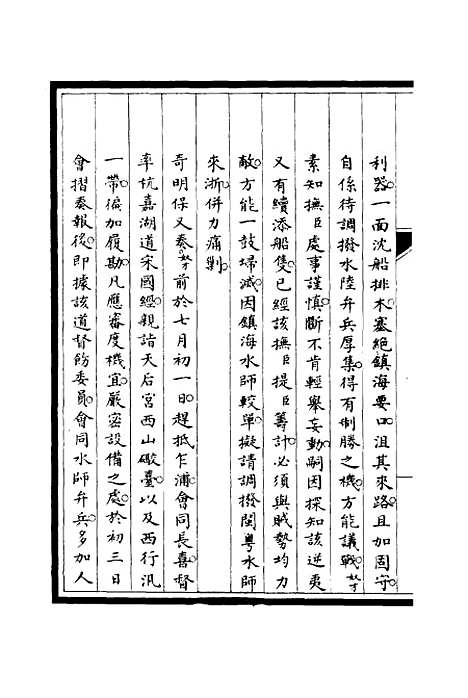 利器一面沈船排木塞絶鎮海要口沮其來路且加固守
自係待調撥水陸弁兵厚集得有制勝之機方能議戰奴才
素知撫臣處事謹慎斷不肯輕舉妄動嗣因探知該逆夷
又有續添船隻已經該撫臣提臣籌計必須與賊勢均力
敵方能一鼓埽滅因鎮海水師較單擬請調撥閩粵水師
來浙併力痛剿
奇明保又奏奴才前於七月初一日趕抵乍浦會同長喜督
率杭嘉湖道宋國經親詣天后宮西山礮臺以及西行汛
一帶徧加履勘凡應審度機宜嚴密設備之處於初三日
會摺奏報後即據該道督飭委員會同水師弁兵多加人